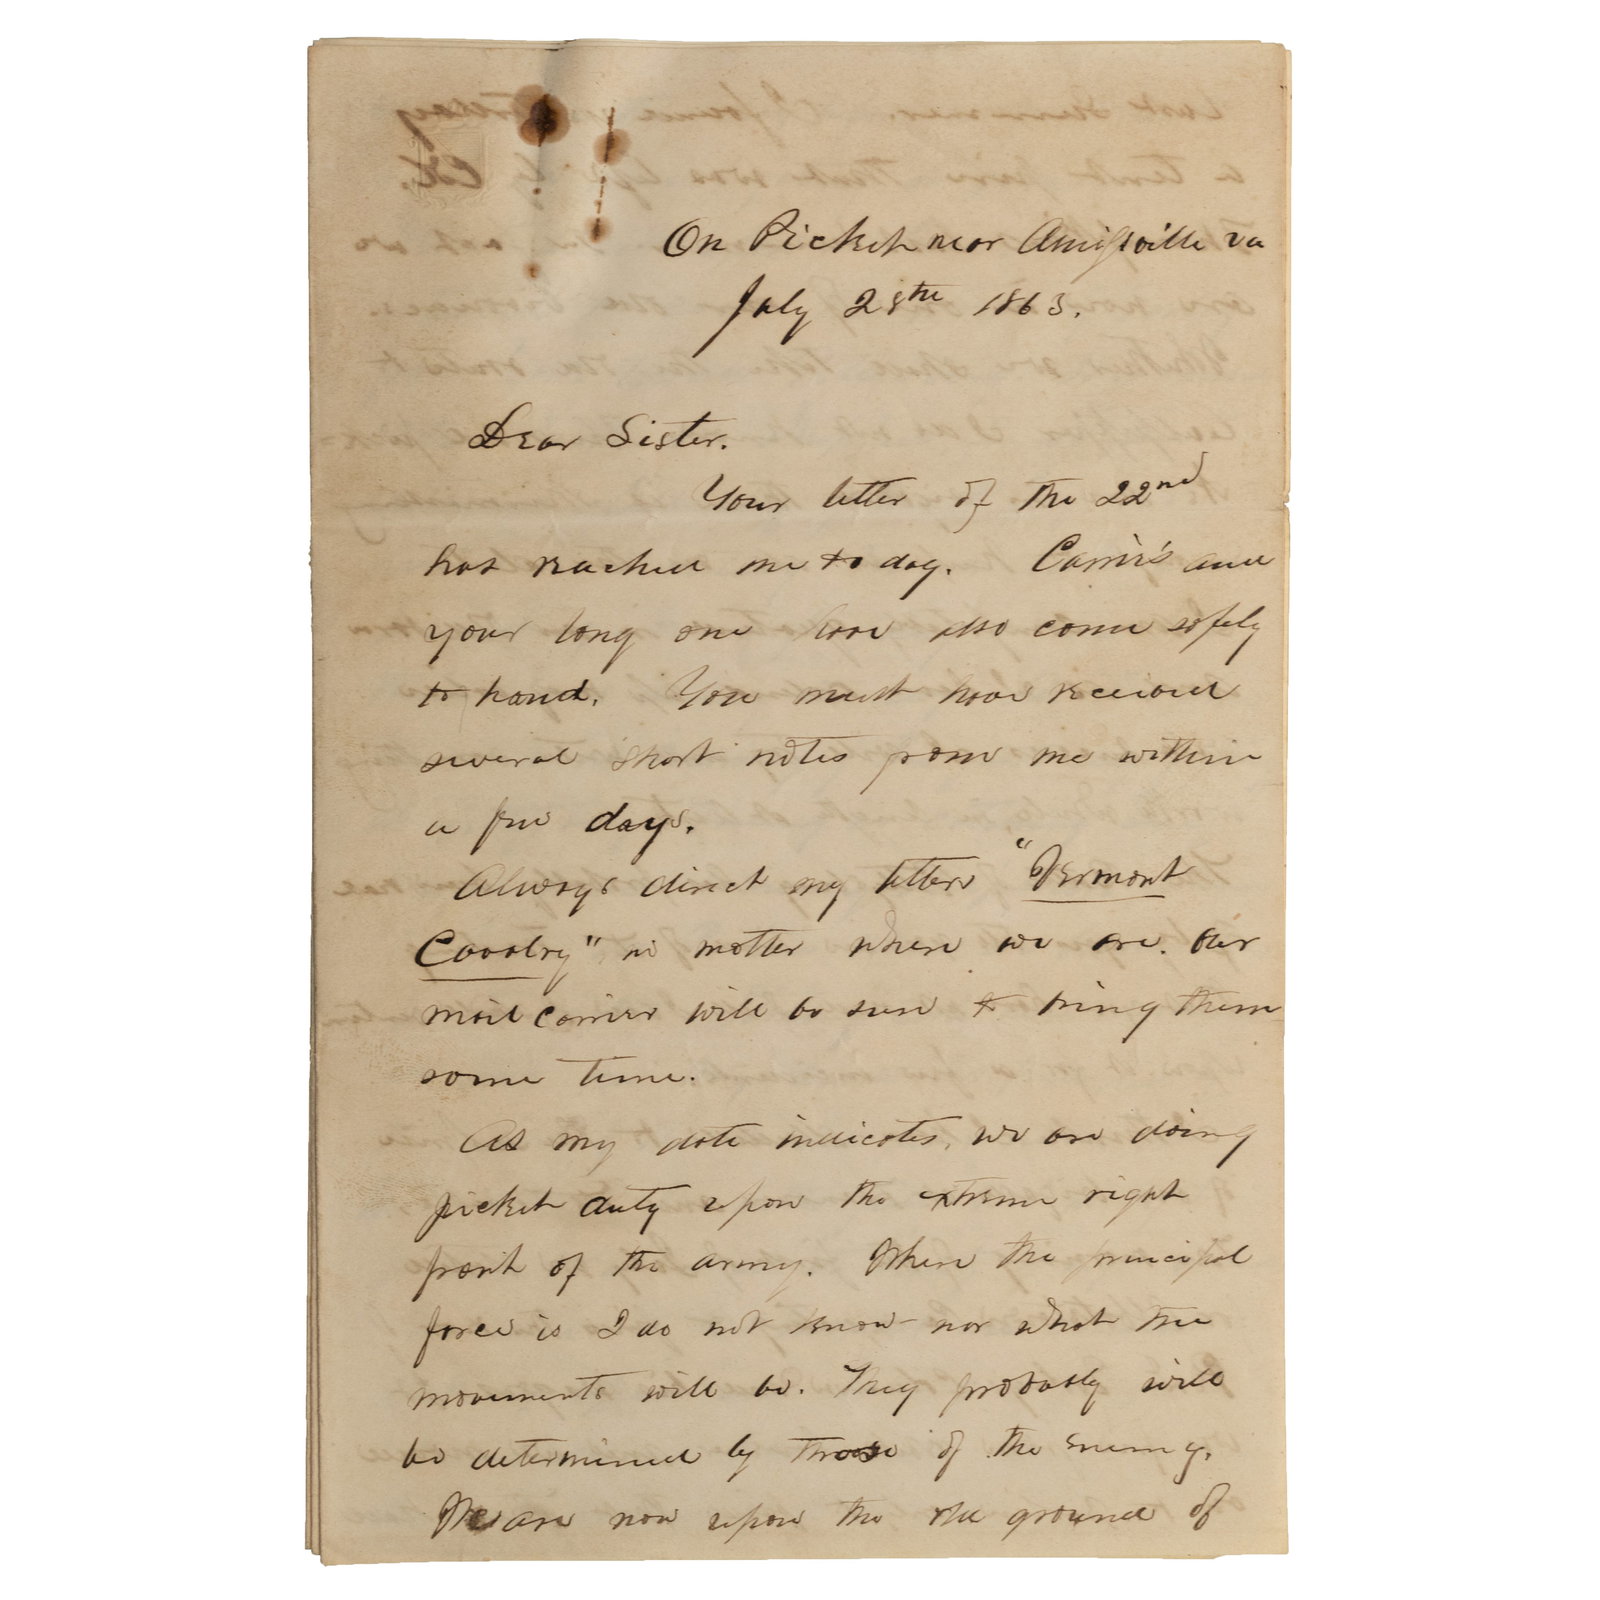 On Picket near Amissville Va
July 28th 1863.
Dear Sister.
Your letter of the 22nd
has reached me to day. Carrie's and
your long one have also come safely
to hand. You must have received
several short notes from me within
a few days.
Always direct my letters "Vermont
Cavalry" no matter where we are. Our
mail carrier will be sure to bring them
some time.
As my date indicates, we are doing
picket duty upon the extreme right
front of the army. Where the principal
force is I do not know nor what the
movements will be. They probably will
be determined by those of the enemy.
We are now upon the old ground of